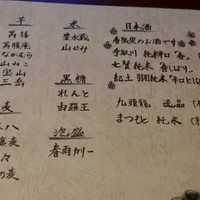 芋
萬膳
萬膳庵
なかむら
山ねこ
宝山
三岳
麦
八
々
の麦
米
豊永蔵
山せみ
黒糖
れんと
由羅王
泡盛
春雨カリー
日本酒
春限定のお酒です
手取川 純米
七賢 純米 春しぼり
紀土
九頭龍 逸品
まつもと 純米